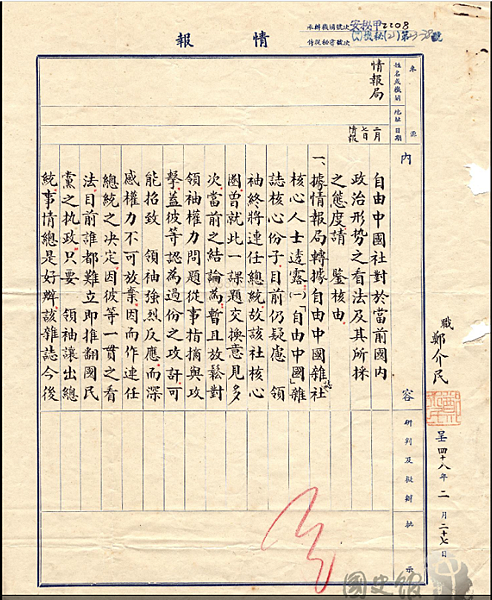 安松甲2208
情報
號
職 鄭介民
呈 四十八年 二 月 二十七 日
來源
姓名或機關
地址
日期
情報局
二月七日情報
內容
研判及擬辦
批示
自由中國社對於當前國內
政治形势之看法及其所採
之態度請 鑒核由
一、據情報局轉據自由中國雜誌社
核心人士透露(一)「自由中國」雜
誌核心份子目前仍疑慮 領
袖終將連任總統故該社核心
圈曾就此一課題交換意見多
次當前之結論為暫且放鬆對
領袖權力問題從事指摘與攻
擊蓋彼等認為過份之攻訐可
能招致 領袖強烈反應而深
感權力不可放棄因而作連任
總統之決定因彼等一貫之看
法目前誰都難立即推翻國民
黨之执政只要 領袖讓出總
統事情總是好辦該雜誌今後
國史館